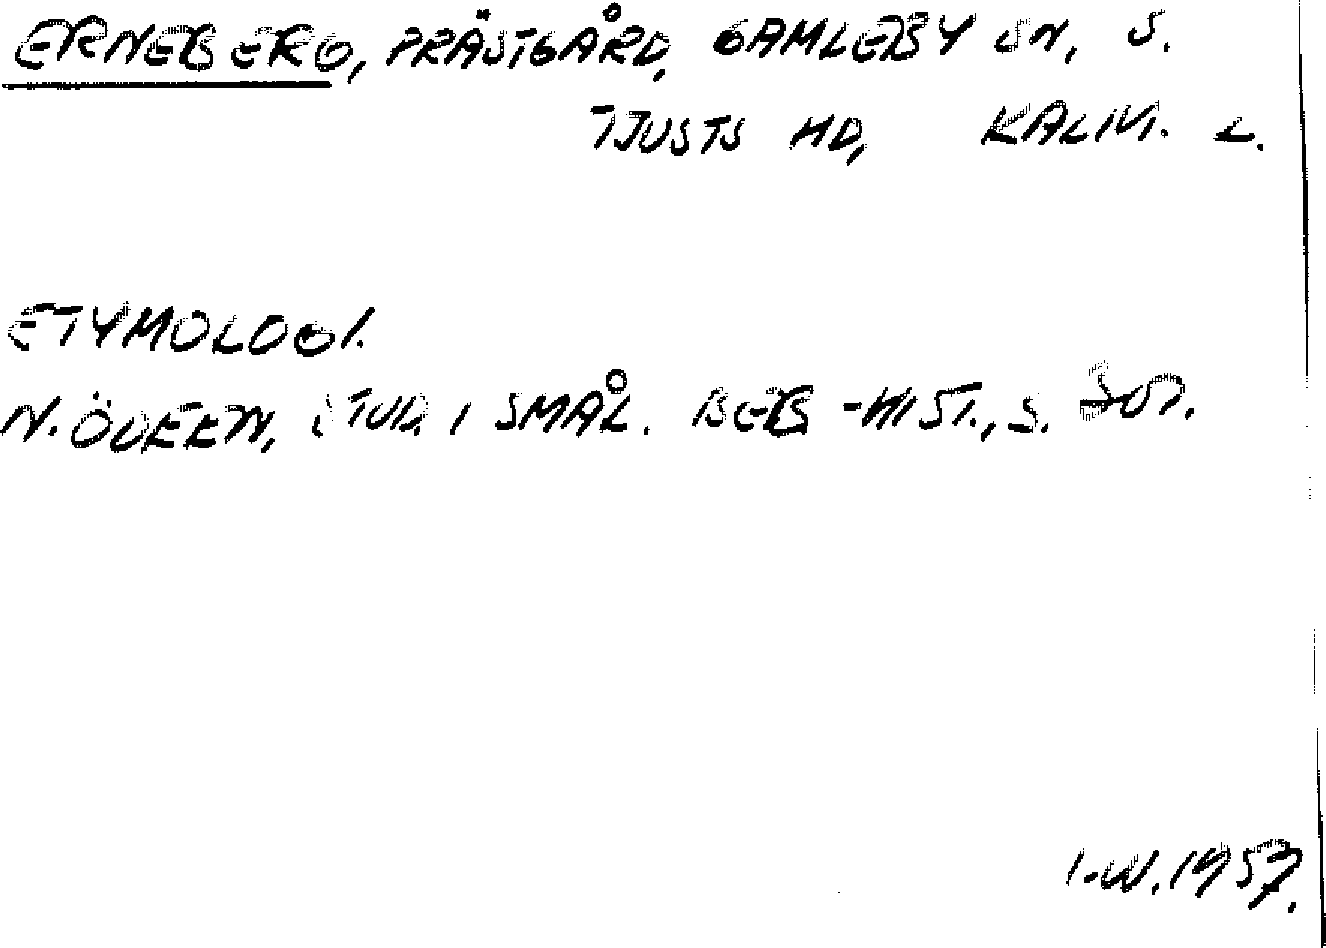 ERNEBERG, PRÄSTGÅRD, GAMLEBY SN, S.
TJUSTS HD, KALM. L.
ETYMOLOGI.
N. ÖDEEN, STUD. I SMÅL. BEB-HIST., S. 307.
I-W. 1957.